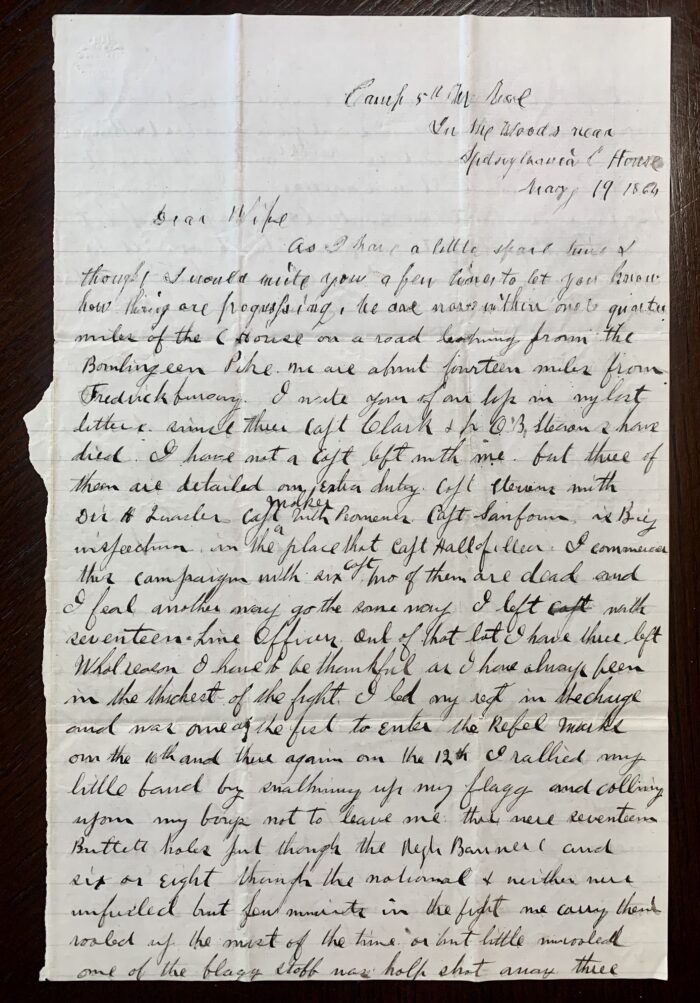 Camp 5th Me Vol
In the Woods near
Spotsylvania C House
May 19 1864
Dear Wife
As I have a little spare time I
thought I would write you a few lines to let you know
how things are progressing, we are now within one & quarter
miles of the C House on a road leading from the
Pike. we are about fourteen miles from
Fredricksburg. I wrote you of our loss in my last
letter & since then Capt Clark & Stevens have
died. I have not a Capt left with me. but three of
them are detailed on extra duty. Capt Stevens with
Div H Quarters Capt Walker with Pioneers Capt Sanborn is Brig
inspection in the place that Capt Hall filled. I commenced
this campaign with six capt two of them are dead and
I feal another may go the same way I left with
seventeen Line Officers out of that lot I have three left
What reason I have to be thankful as I have always been
in the thickest of the fight. I led my regt in the charge
and was one of the fist to enter the Rebel works
on the 10th and then again on the 12th I rallied my
little band by snathing up my flagg and calling
upon my boys not to leave me thar were seventeen
Bullett holes put though the Regt Banner and
six or eight though the national & neither were
unfurled but few minits in the fight we carry them
rooled up the most of the time or but little unrooled
one of the flagg staff was half shot away three